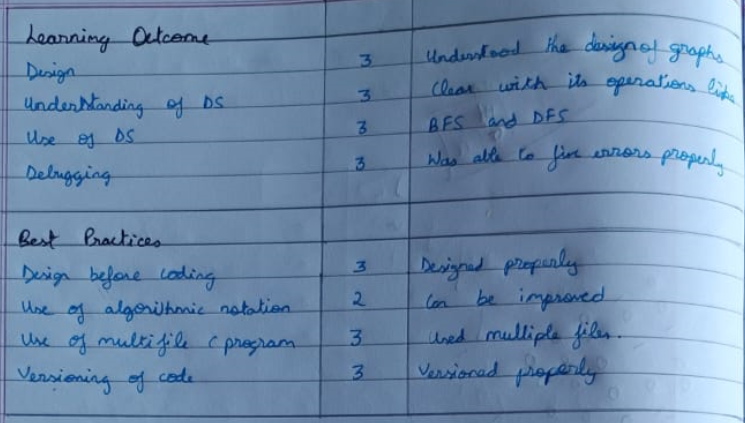 Learning Outcome
Design 3 Understood the design of graphs
Understanding of DS 3 Clear with its operations like
Use of DS 3 BFS and DFS
Debugging 3 Was able to fix errors properly
Best Practices
Design before coding 3 Designed properly
Use of algorithmic notation 2 Can be improved
Use of multifile C program 3 Used multiple files.
Versioning of code 3 Versioned properly